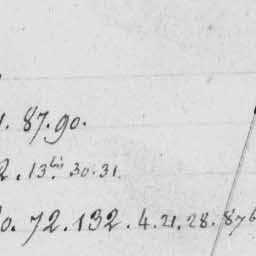 87.90.
2. 13bis. 30. 31.
0. 72. 132. 4. 21. 28. 876